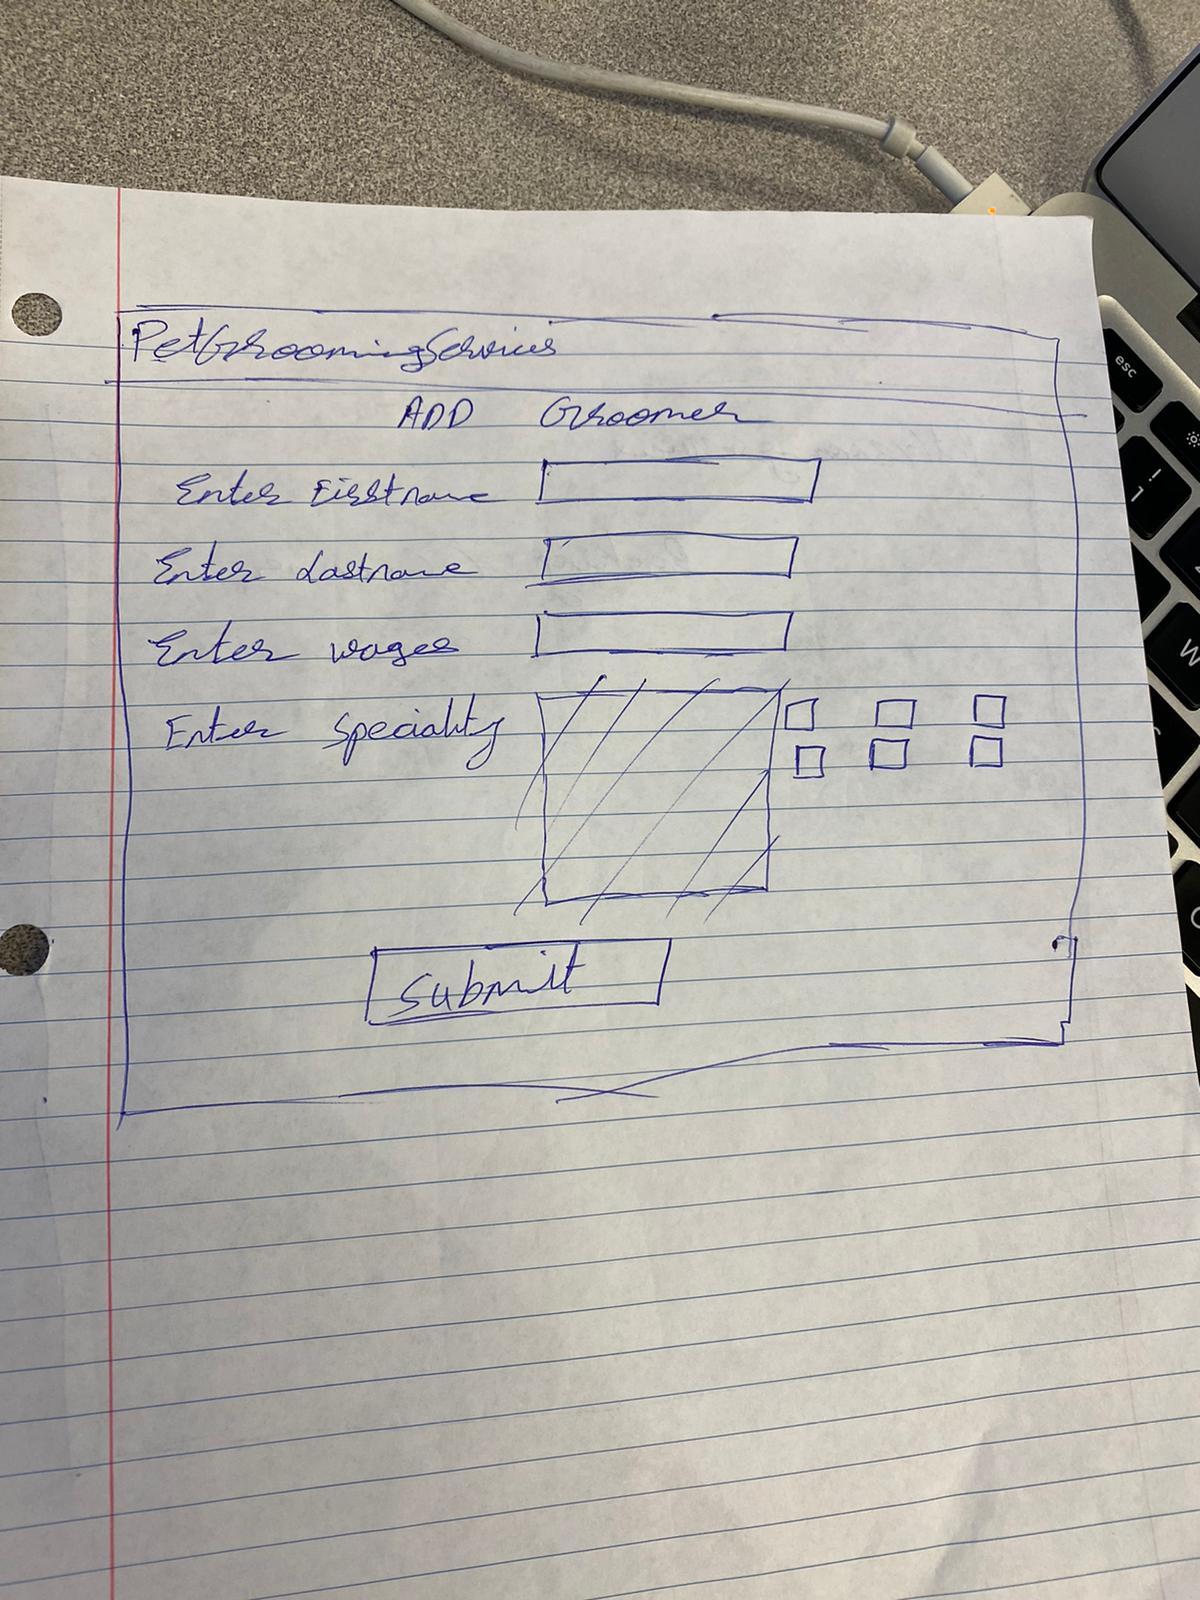 PetGroomingServices
ADD Groomer
Enter Firstname
Enter Lastname
Enter wages
Enter Speciality
Submit
esc
!
1
W